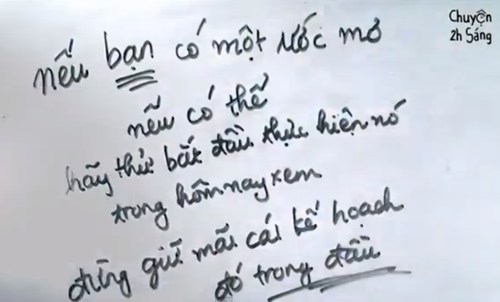 Chuyện
2h Sáng
nếu bạn có một ước mơ
nếu có thể
hãy thử bắt đầu thực hiện nó
trong hôm nay xem
đừng giữ mãi cái kế hoạch
đó trong đầu